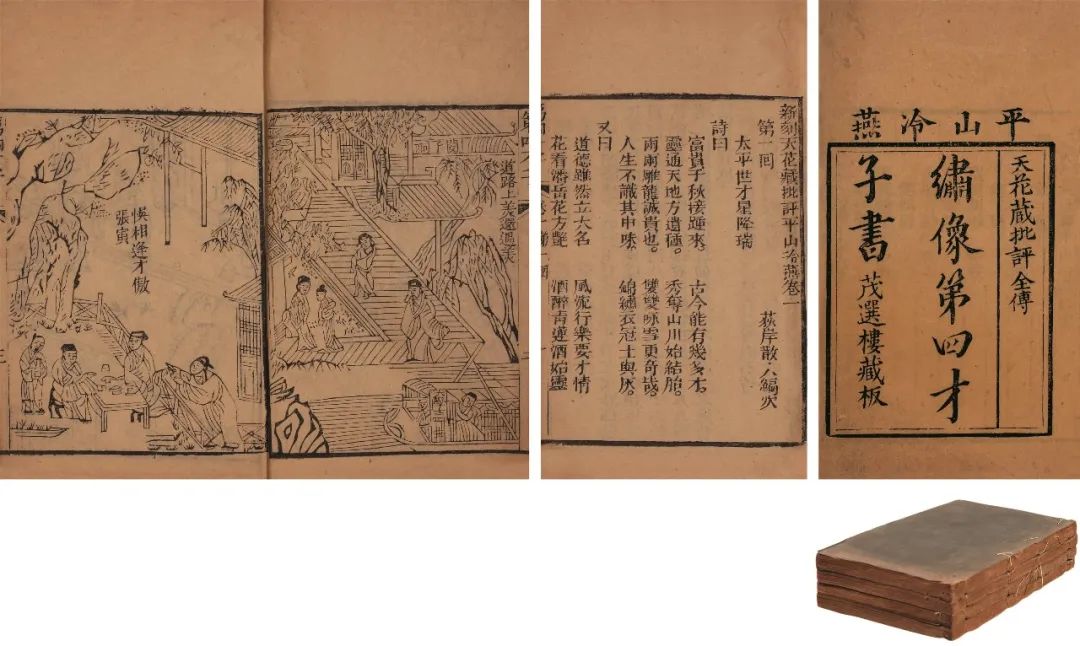 平山冷燕
天花蔵批評全傳
繡像第四才
子書 茂選樓藏板
新刻天花藏批評平山冷燕卷一
第一回 荻岸散人編次
太平世才星降瑞
詩曰
富貴千秋接踵來。 古今能有幾多才。
靈通天地方遺種。 秀奪山川始結胎。
兩兩雕龍誠貴也。 雙雙咏雪更奇哉。
人生不識其中味。 錦繡衣冠土與灰。
又曰
道德雖然立大名 風流行樂要才情
花看潘岳花方艷 酒醉青蓮酒始靈
道路上美還遇美
閔子祠
悞相逢才傲
張寅